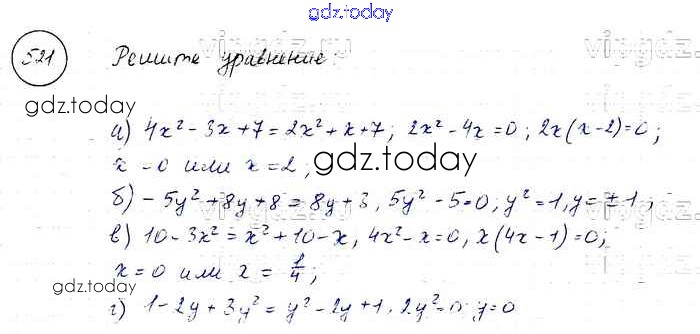 gdz.today
521 Решите уравнение:
vipgdz.ru
vipgdz.ru
gdz.today
а) 4x² - 3x + 7 = 2x² + x + 7; 2x² - 4x = 0; 2x(x - 2) = 0;
x = 0 или x = 2;
gdz.today
б) - 5y² + 8y + 8 = 8y + 3, 5y² - 5 = 0; y² = 1, y = ± 1;
в) 10 - 3x² = x² + 10 - x, 4x² - x = 0, x(4x - 1) = 0;
x = 0 или x = 1/4;
gdz.today
г) 1 - 2y + 3y² = y² - 2y + 1, 2y² = 0 y = 0